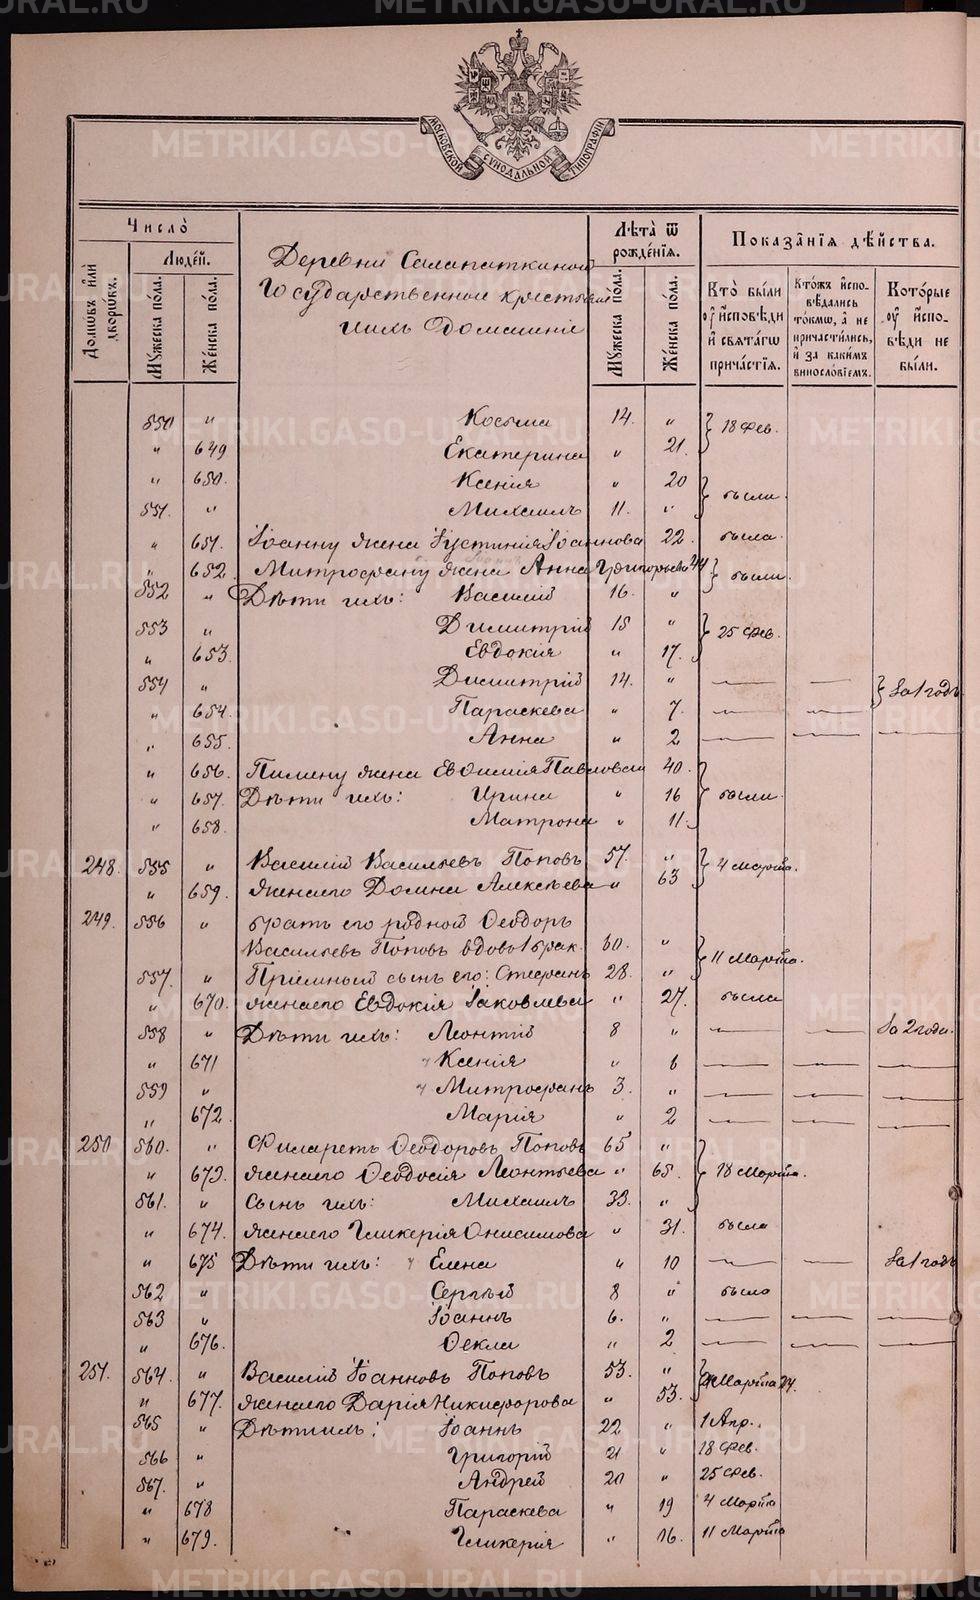 METRIKI.GASO-URAL.RU
МОСКОВСКОЙ СѴНОДАЛЬНОЙ ТИПОГРАФІИ
Число̀
Людѐй.
Домѡвъ и҆лѝ дворѡвъ.
Мꙋжеска по́ла.
Же́нска по́ла.
Деревни Салапаткиной
Государственные крестьяне
и ихъ домашніе
Лѣ́та ѿ рожде́нїѧ.
Мꙋжеска по́ла.
Же́нска по́ла.
Показа̑нїѧ дѣ́йства.
Кто̀ бы́ли оу҆ и҆сповѣ́ди и҆ свѧта́гѡ прича́стїѧ.
Кто́жъ и҆сповѣ́дались то́кмѡ, а҆ не причасти́лись, и҆ за каки́мъ винослѡ́вїемъ.
Кото́рые оу҆ и҆спо́вѣди не бы́ли.
550 " Косьма 14. " } 18 Фев.
" 649 Екатерина " 21.
" 650. Ксенія " 20 } были.
551. " Михаилъ 11. "
" 651. Іоанну жена Іустинія Іоаннова 22. была.
" 652. Митрофану жена Анна Григорьева 44 } были.
552 " Дѣти ихъ: Василій 16. "
553 " Димитрій 15 " } 25 Фев.
" 653. Евдокія " 17.
554 " Димитрій 14. " — — } За 1 годъ
" 654. Параскева " 7. — —
" 655. Анна " 2 — — —
" 656. Пимену жена Евфимія Павловая 40. } были.
" 657. Дѣти ихъ: Ирина " 16
" 658. Матрона " 11.
248. 555 " Василій Васильевъ Поповъ 57. " } 4 Марта.
" 659. Жена его Домна Алексѣева " 63
249. 556 " братъ его родной Ѳеодоръ
Васильевъ Поповъ вдовъ 1 брак. 60. " } 11 Марта.
557. " Пріемный сынъ его: Стефанъ 28. "
" 670. Жена его Евдокія Іаковлева " 27. была
558 " Дѣти ихъ: Леонтій 8 " — — За 2 года.
" 671 Ксенія " 6 — — —
559 " Митрофанъ 3. " — — —
" 672. Марія " 2 — — —
250 560. " Филаретъ Ѳеодоровъ Поповъ 65 " } 18 Марта.
" 673. Жена его Ѳеодосія Леонтьева " 65.
561. " Сынъ ихъ: Михаилъ 33. "
" 674. Жена его Гликерія Онисимова " 31. была
" 675 Дѣти ихъ: Елена " 10 — — За 1 годъ
562 " Сергѣй 8 " было
563 " Іоаннъ 6. " — — —
" 676. Ѳекла " 2 — — —
251. 564. " Василій Іоанновъ Поповъ 53. " } Марта
" 677. Жена его Дарія Никифорова " 53.
565 " Дѣти ихъ: Іоаннъ 22 " 1 Апр.
566 " Григорій 21 " 18 Фев.
567. " Андрей 20 " 25 Фев.
" 678 Параскева " 19 4 Марта
" 679. Гликерія " 16. 11 Марта